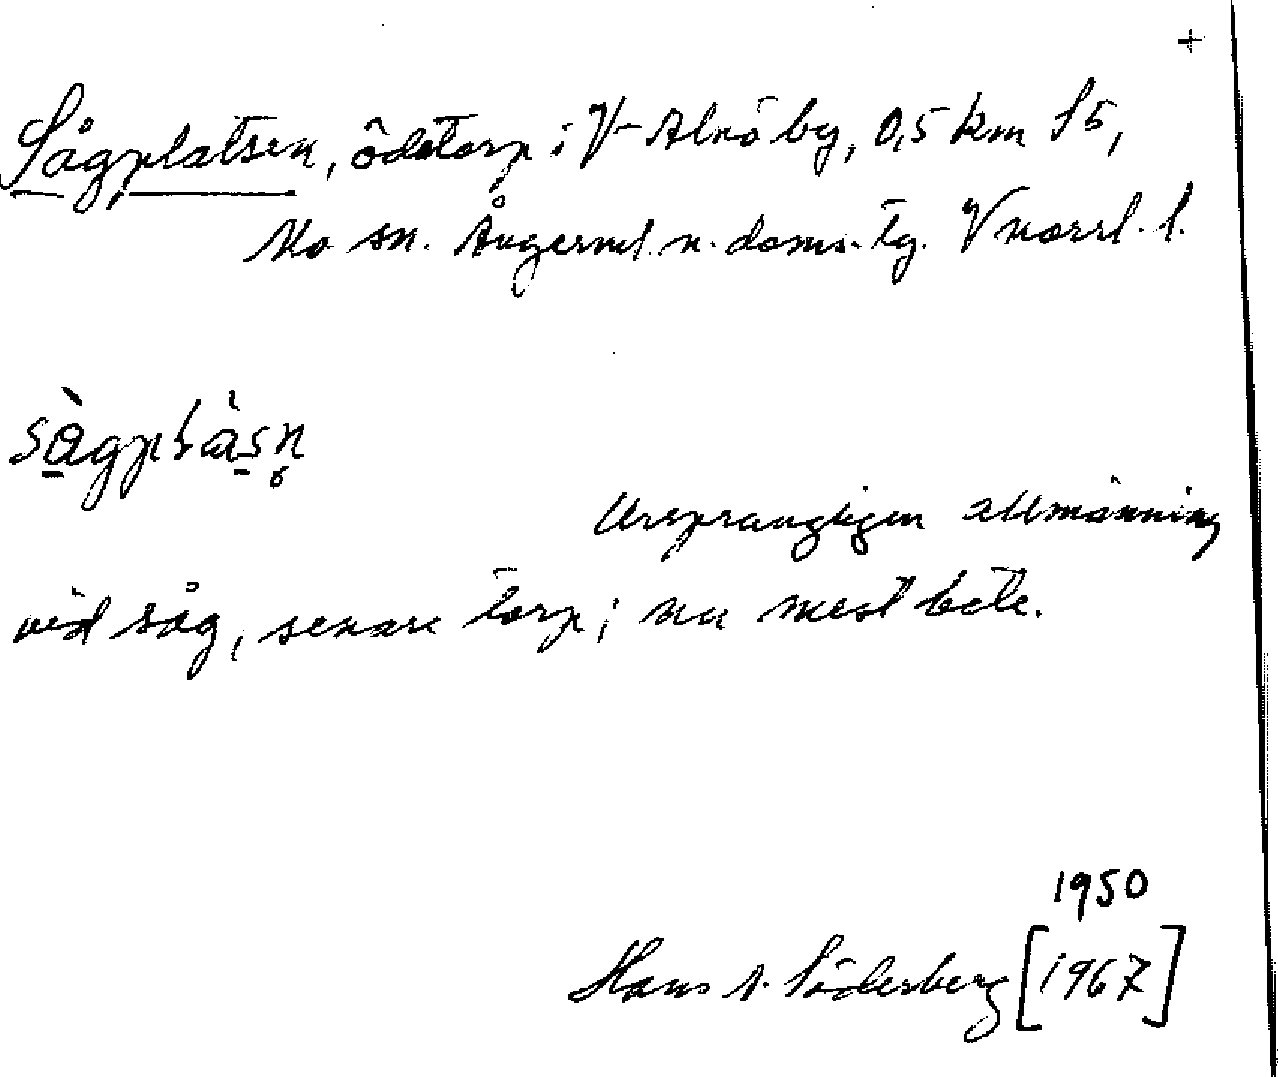 +
Sågplatsen, ödetorp i V Alnö by, 0,5 km SÖ,
Mo sn. Ångerml. n. doms. tg. Vnorrl. l.
Ursprungligen allmänning
vid såg, senare torp; nu mest bete.
1950
Hans A. Söderberg [1967]